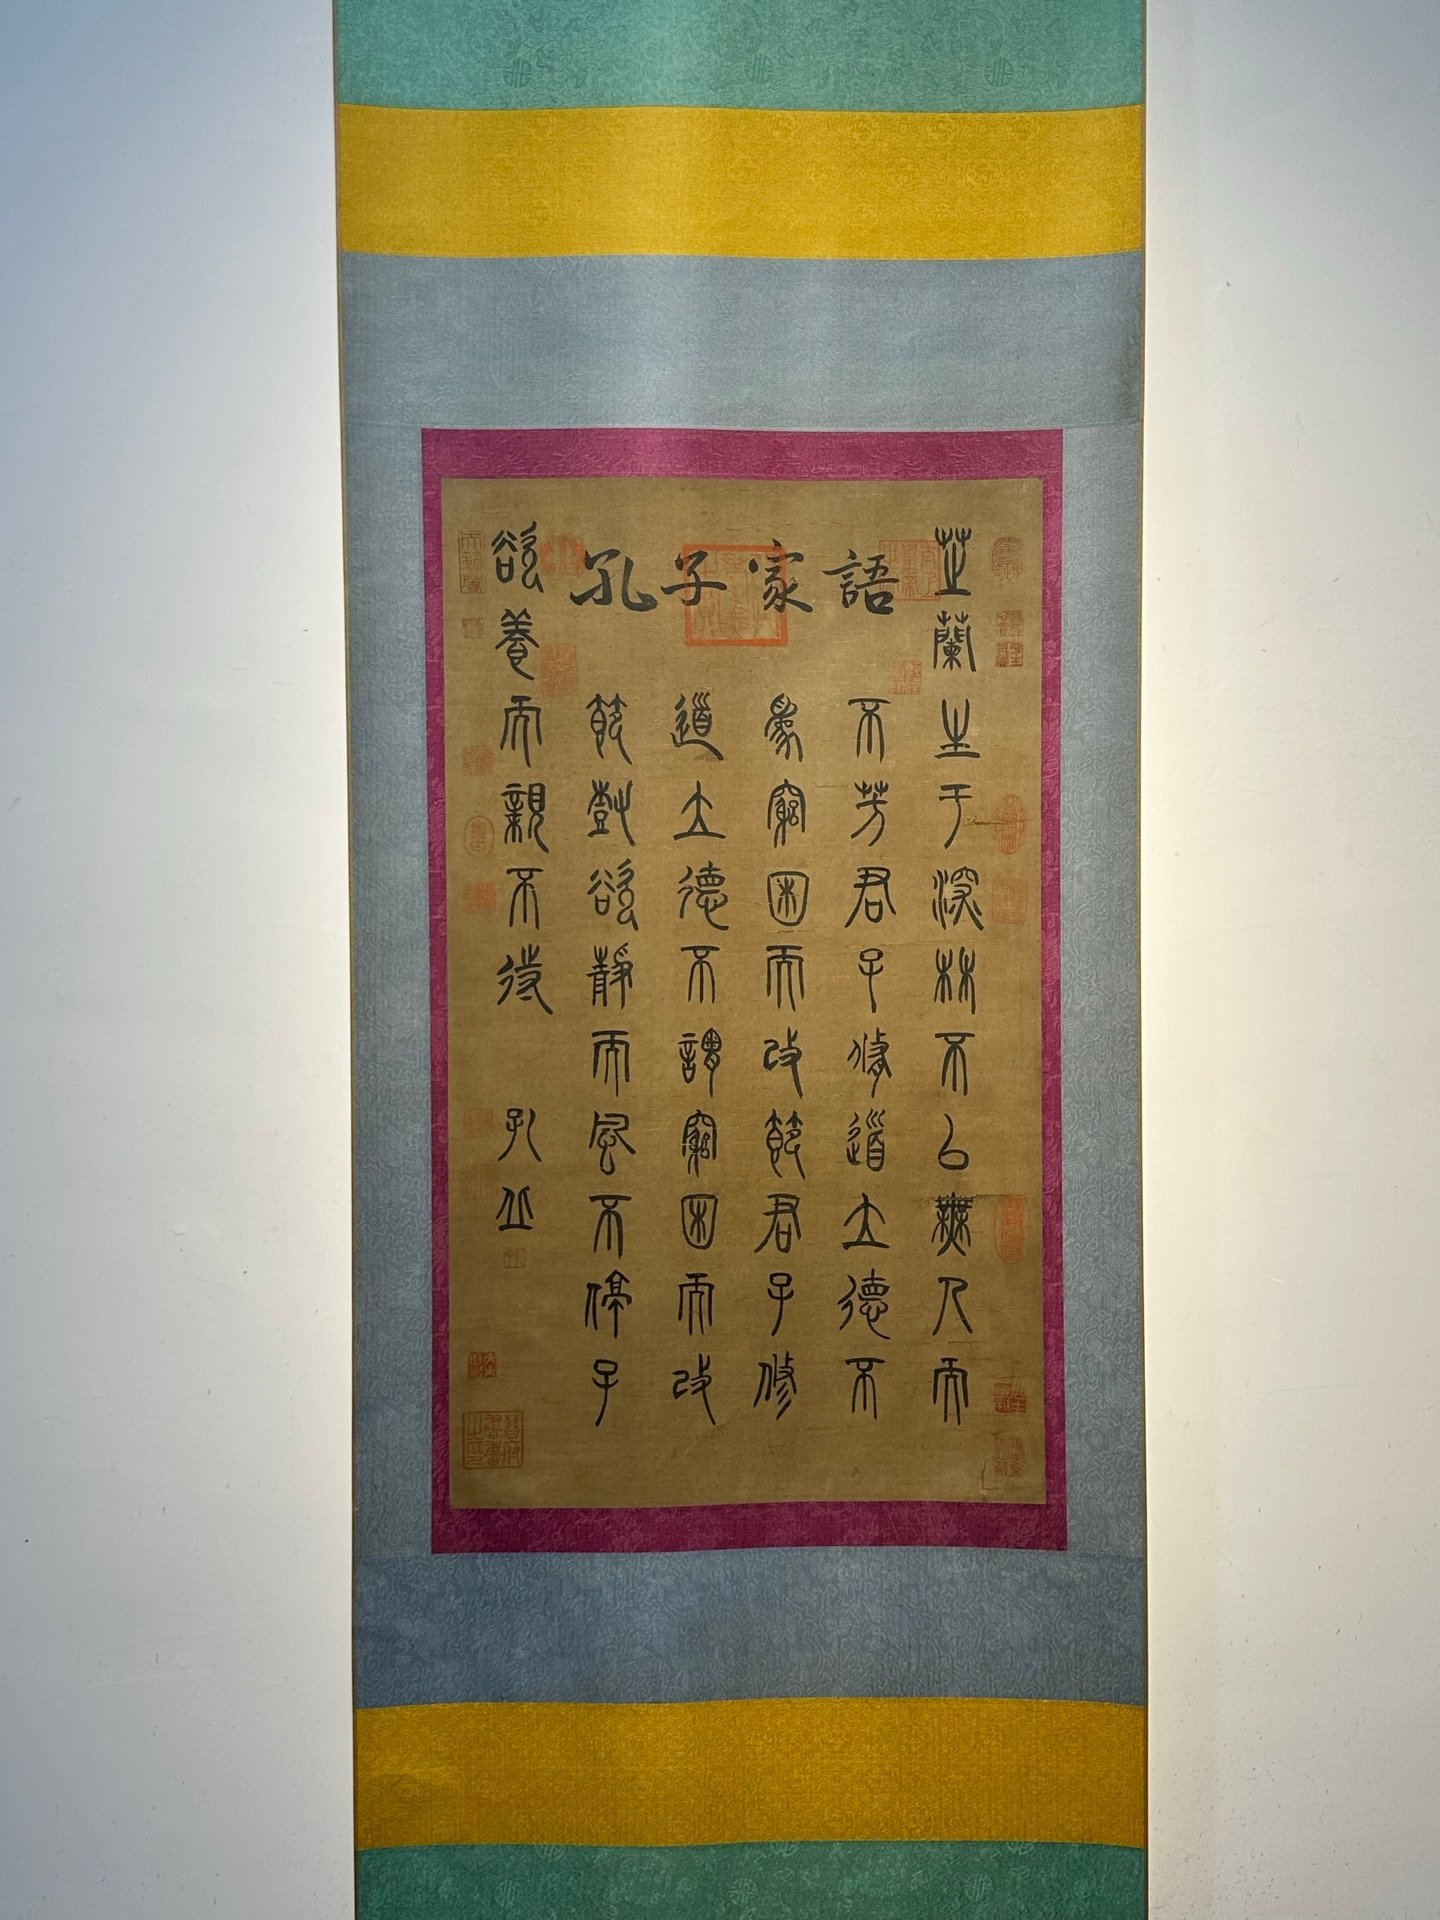 孔子家語
芝蘭生于深林不以無人而
不芳君子修道立德不
為窮困而改節君子修
道立德不謂窮困而改
節樹欲靜而風不停子
欲養而親不待 孔丘